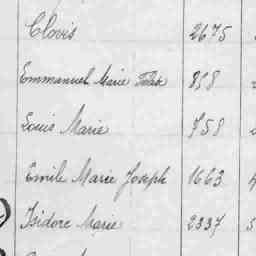 Clovis 2675
Emmanuel Marie 858
Louis Marie 758
Emile Marie Joseph 1663
Isidore Marie 2337